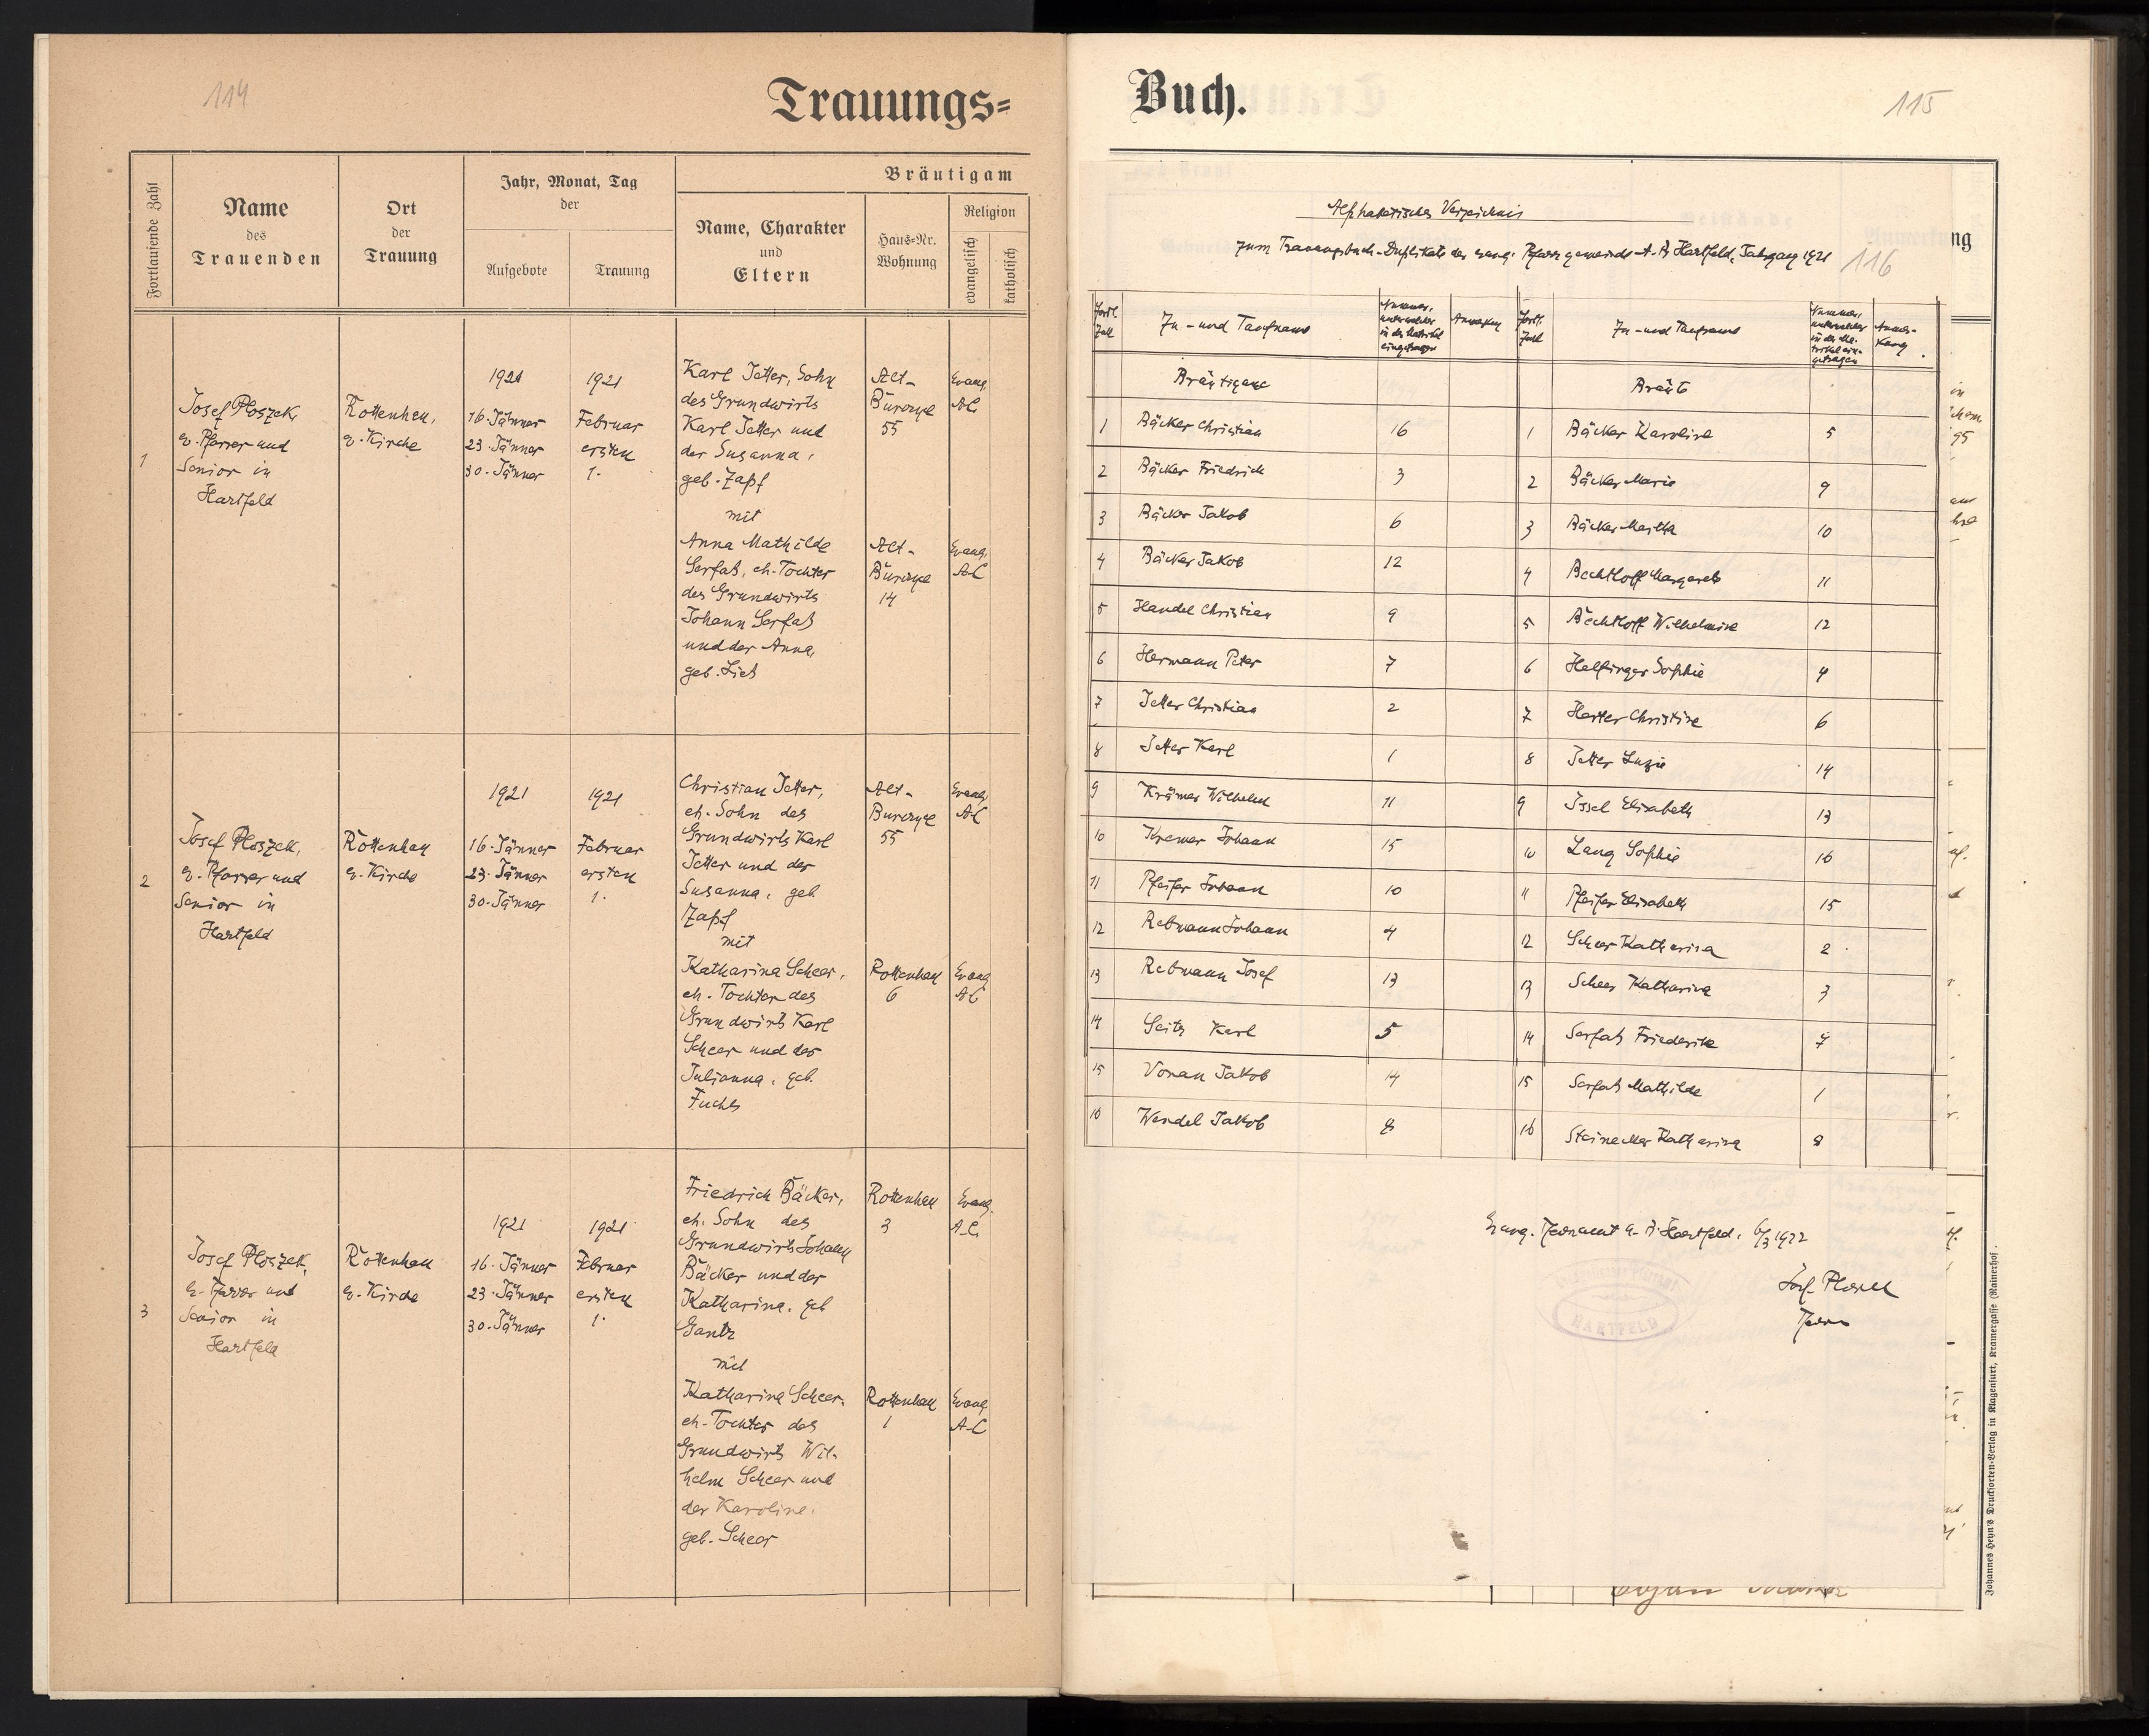 114
Trauungs=
Fortlaufende Zahl
Name
des
Trauenden
Ort
der
Trauung
Jahr, Monat, Tag
der
Aufgebote
Trauung
Bräutigam
Name, Charakter
und
Eltern
Haus=Nr.
Wohnung
Religion
evangelisch
katholisch
1
Josef Ploszek,
ev. Pfarrer und
Senior in
Hartfeld
Rottenhan,
ev. Kirche
1921
16. Jänner
23. Jänner
30. Jänner
1921
Februar
ersten
1.
Karl Jetter, Sohn
des Grundwirts
Karl Jetter und
der Susanna,
geb. Zapf
mit
Anna Mathilde
Serfas, eh. Tochter
des Grundwirts
Johann Serfas
und der Anna,
geb.
Alt-
Burczyce
55
Evang.
A.C.
Alt-
Burczyce
14
Evang.
A.C
2
Josef Ploszek,
ev. Pfarrer und
Senior in
Hartfeld
Rottenhan
ev. Kirche
1921
16. Jänner
23. Jänner
30. Jänner
1921
Februar
ersten
1.
Christian Jetter,
eh. Sohn des
Grundwirts Karl
Jetter und der
Susanna, geb.
Zapf
mit
Katharina Scheer,
eh. Tochter des
Grundwirts Karl
Scheer und der
Julianna, geb.
Fuchs
Alt-
Burczyce
55
Evang.
A.C
Rottenhan
6
Evang
A.C
3
Josef Ploszek,
ev. Pfarrer und
Senior in
Hartfeld
Rottenhan
ev. Kirche
1921
16. Jänner
23. Jänner
30. Jänner
1921
Februar
ersten
1.
Friedrich Bäcker,
eh. Sohn des
Grundwirts Johann
Bäcker und der
Katharina, geb
Gantz
mit
Katharina Scheer,
eh. Tochter des
Grundwirts Wil-
helm Scheer und
der Karoline,
geb. Scheer
Rottenhan
3
Evang.
A.C.
Rottenhan
1
Evang
A.C
Buch.
115
Alphabetisches Verzeichnis
zum Trauungsbuch-Duplikate der evang. Pfarrgemeinde A. B. Hartfeld, Jahrgang 1921
116
ng
Fortl. Zahl
Zu- und Taufname
Nummer, unter welcher in der Matrikel eingetragen
Anmerkung
Fortl. Zahl
Zu- und Taufname
Nummer, unter welcher in der Ma- trikel ein- getragen
Anmer- kung
Bräutigame
Bräute
1 Bäcker Christian 16 1 Bäcker Karoline 5
2 Bäcker Friedrich 3 2 Bäcker Marie 9
3 Bäcker Jakob 6 3 Bäcker Martha 10
4 Bäcker Jakob 12 4 Bechtloff Margareta 11
5 Handel Christian 9 5 Bechtloff Wilhelmine 12
6 Hermann Peter 7 6 Helfinger Sophie 4
7 Jetter Christian 2 7 Harter Christine 6
8 Jetter Karl 1 8 Jetter Luzie 14
9 Krämer Wilhelm 11 9 Issel Elisabeth 13
10 Kremer Johann 15 10 Lang Sophie 16
11 Pfeifer Johann 10 11 Pfeifer Elisabeth 15
12 Rebmann Johann 4 12 Scheer Katharina 2
13 Rebmann Josef 13 13 Scheer Katharina 3
14 Seitz Karl 5 14 Serfas Friederike 7
15 Vonau Jakob 14 15 Serfas Mathilde 1
16 Wendel Jakob 8 16 Steinecker Katharina 8
Evang. Pfarramt A. B. Hartfeld, 6/3 1922
Josef Ploszek
Pfarrer
HARTFELD
Johannes Heyn's Drucksorten-Verlag in Klagenfurt, Kramergasse (Rainerhof).